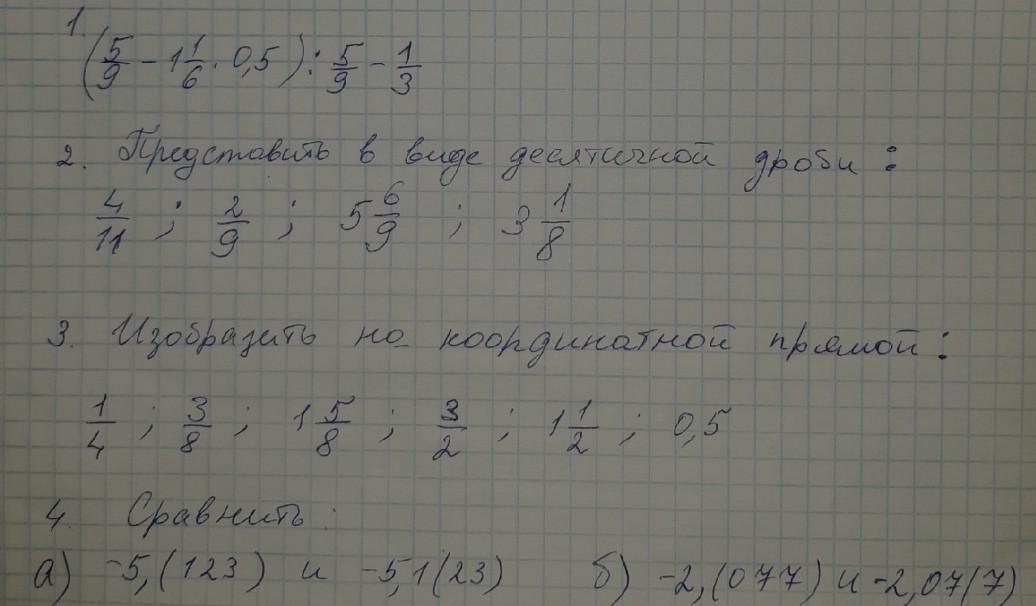 1.
(5/9 - 1 1/6 · 0,5) : 5/9 - 1/3
2. Представить в виде десятичной дроби :
4/11 ; 2/9 ; 5 6/9 ; 3 1/8
3. Изобразить на координатной прямой :
1/4 ; 3/8 ; 1 5/8 ; 3/2 ; 1 1/2 ; 0,5
4. Сравнить :
а) -5,(123) и -5,1(23) б) -2,(077) и -2,07(7)